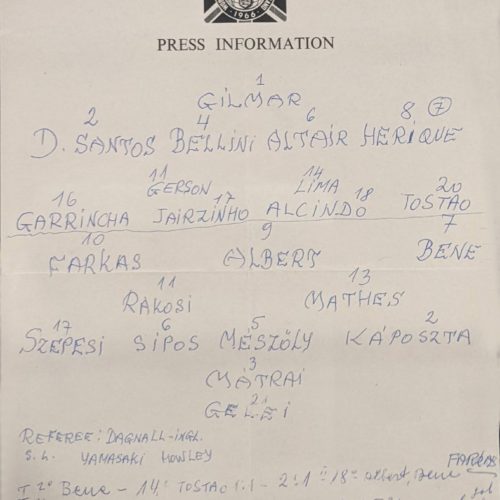 1966
PRESS INFORMATION
1
GILMAR
2 4 6 8 (7)
D. SANTOS BELLINI ALTAIR HERIQUE
11 14
GERSON LIMA
16 17 18 20
GARRINCHA JAIRZINHO ALCINDO TOSTAO
10 9 7
FARKAS ALBERT BENE
11 13
RAKOSI MATHES
17 6 5 2
SZEPESI SIPOS MÉSZÖLY KÁPOSZTA
3
MÁTRAI
21
GELEI
REFEREE: DAGNALL-INGL.
S.L. YAMASAKI HOWLEY
FARKAS
Bene - 14' TOSTAO 1.1 - 2:1 18' Albert, Bene